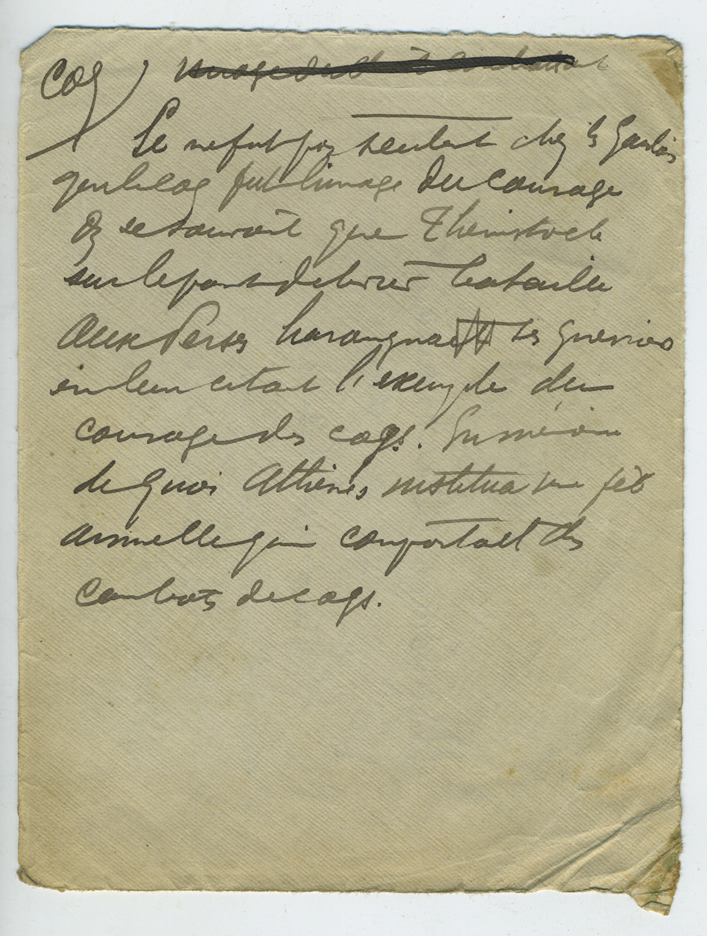 Coq)
Ce ne fut pas seulemt chez les Gaulois
que le coq fut l'image du courage
On se souvient que Themistocle
sur le point de livrer bataille
aux Perses harangua ses guerriers
en leur citant l'exemple du
courage des coqs. En mémoire
de quoi Athènes institua une fête
annuelle qui comportait des
combats de coqs.